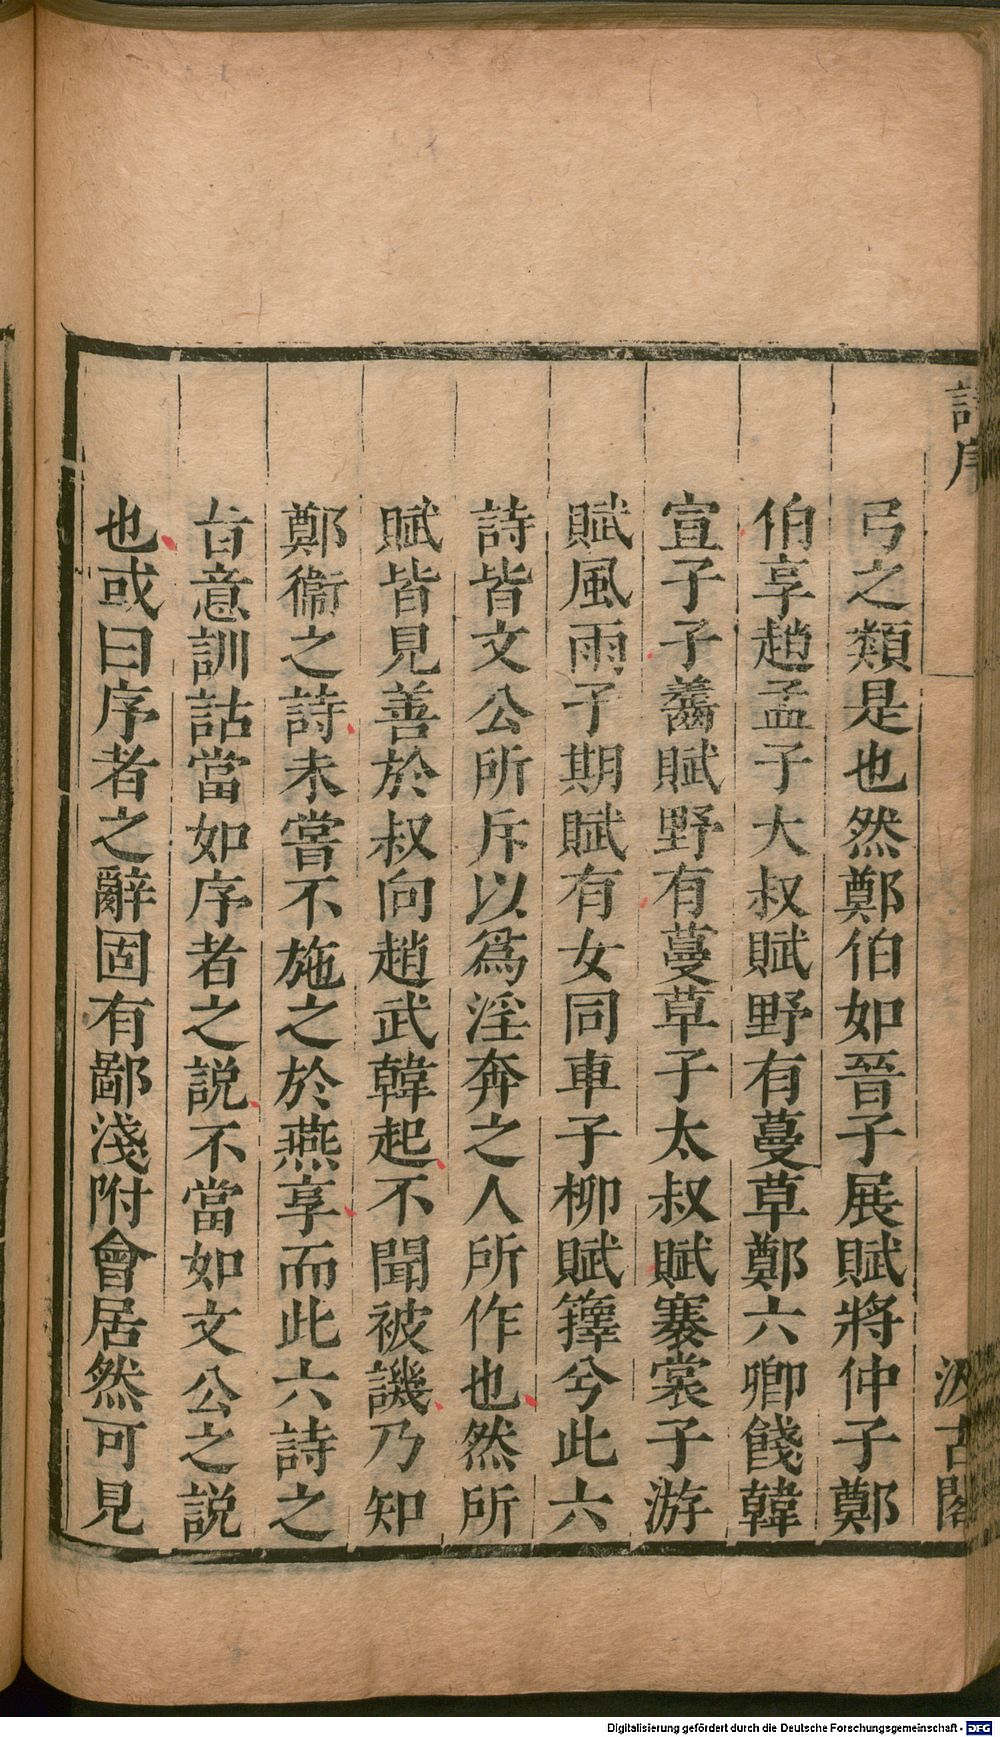 詩序
汲古閣
弓之類是也然鄭伯如晉子展賦將仲子鄭
伯享趙孟子大叔賦野有蔓草鄭六卿餞韓
宣子子齹賦野有蔓草子太叔賦褰裳子游
賦風雨子期賦有女同車子柳賦籜兮此六
詩皆文公所斥以爲淫奔之人所作也然所
賦皆見善於叔向趙武韓起不聞被譏乃知
鄭衞之詩未嘗不施之於燕享而此六詩之
㫖意訓詁當如序者之說不當如文公之說
也或曰序者之辭固有鄙淺附會居然可見
Digitalisierung gefördert durch die Deutsche Forschungsgemeinschaft - DFG